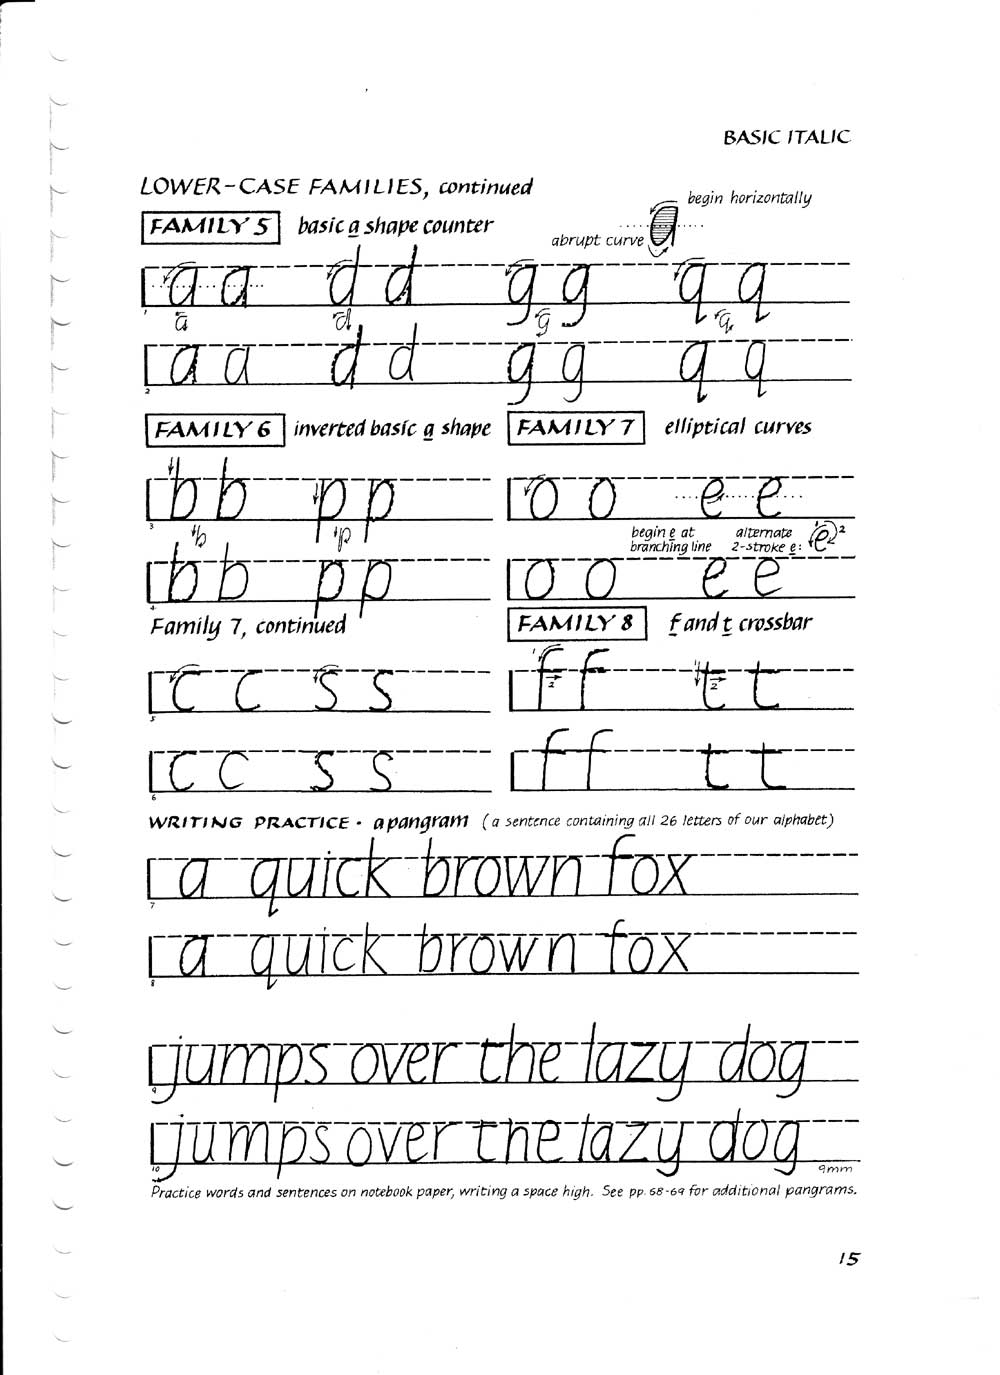 BASIC ITALIC
LOWER-CASE FAMILIES, continued
begin horizontally
FAMILY 5 basic a shape counter
abrupt curve a
a a d d g g q q
1 a d g q
a a d d g g q q
2
FAMILY 6 inverted basic a shape
b b p p
3 b p
b b p p
4
FAMILY 7 elliptical curves
o o e e
begin e at branching line
alternate 2-stroke e: 1 e 2
o o e e
Family 7, continued
c c s s
5
c c s s
6
FAMILY 8 f and t crossbar
1 f 2 f 1 t 2 t
f f t t
WRITING PRACTICE · a pangram (a sentence containing all 26 letters of our alphabet)
a quick brown fox
7
a quick brown fox
8
jumps over the lazy dog
9
jumps over the lazy dog
10 9mm
Practice words and sentences on notebook paper, writing a space high. See pp. 68-69 for additional pangrams.
15